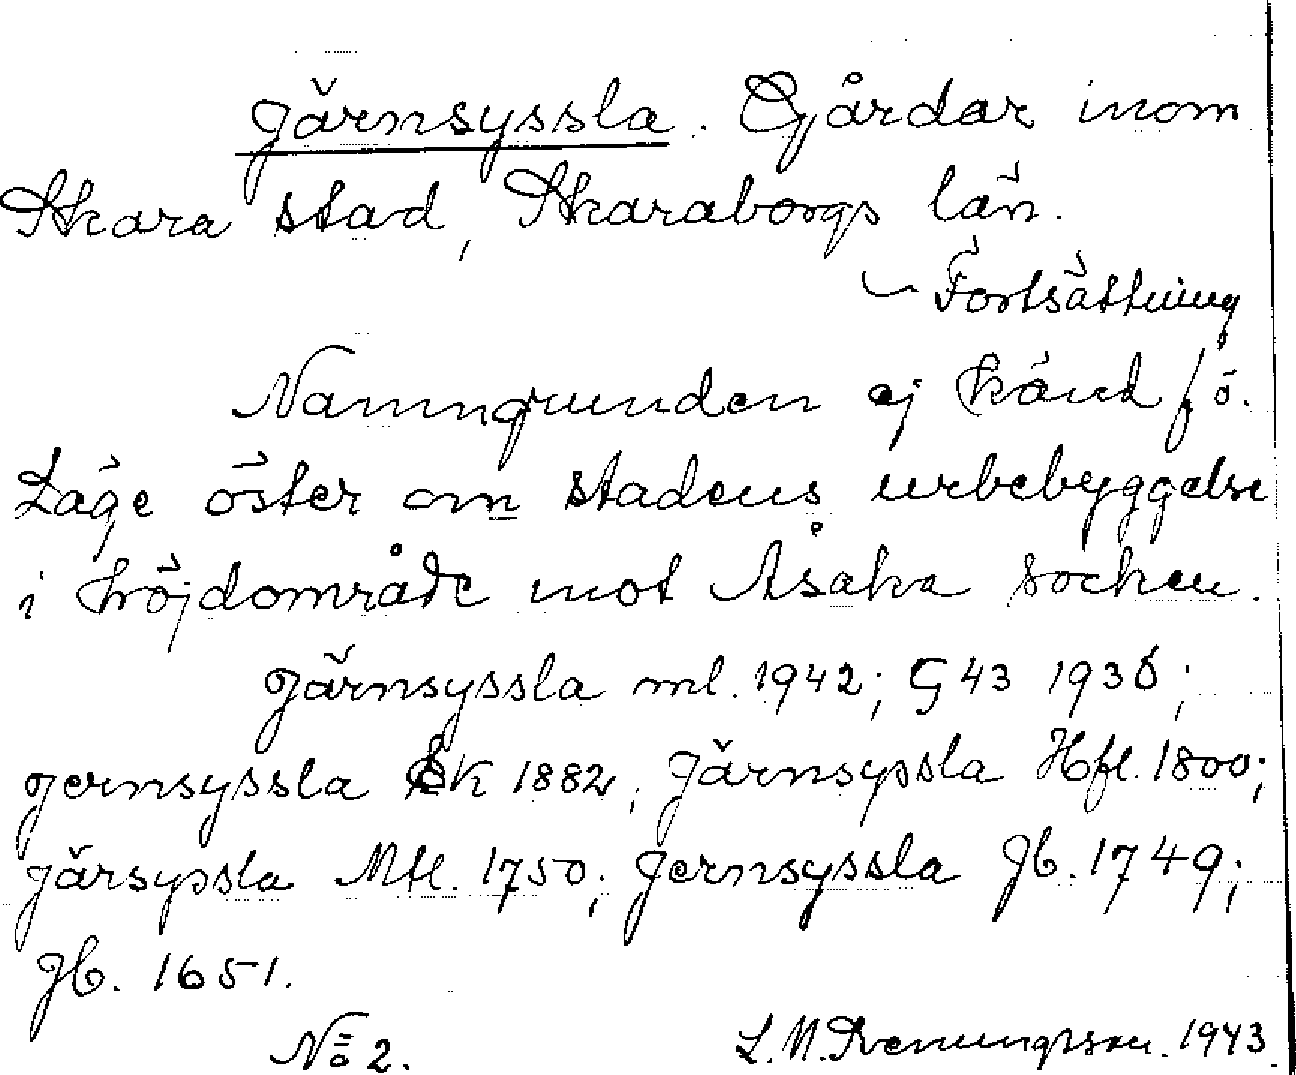 Järnsyssla. Gårdar inom
Skara stad, Skaraborgs län.
~ Fortsättning
Namngrunden ej känd f ö.
Läge öster om stadens urbebyggelse
i höjdområde mot Åsaka socken.
Järnsyssla ml. 1942; G 43 1936;
Jernsyssla Ek 1882; Järnsyssla Hfl. 1800;
Järsyssla Mtl. 1750; Jernsyssla Jb. 1749;
Jb. 1651.
No 2. L. M. Svenungsson. 1943.